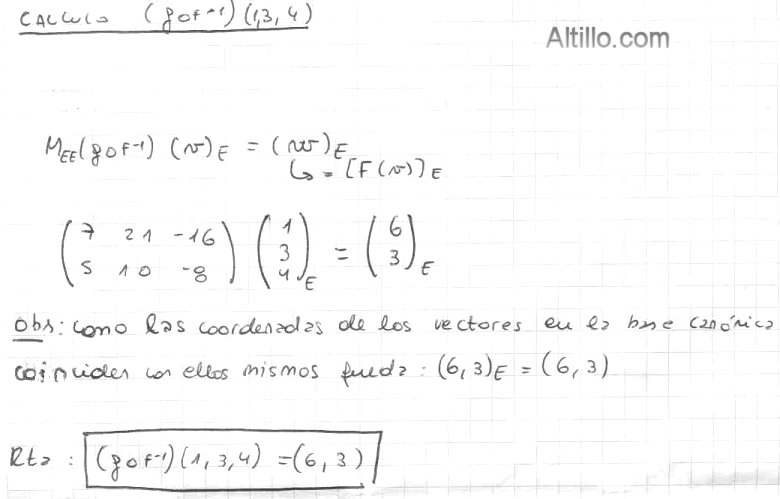 CALCULO (gof⁻¹)(1,3,4)
Altillo.com
M_EE(gof⁻¹) (v)_E = (w)_E
↳ = [F(v)]_E
(7 21 -16) (1) = (6)
(5 10 -8) (3) (3)_E
(4)_E
Obs: como las coordenadas de los vectores en la base canónica
coinciden con ellos mismos queda: (6,3)_E = (6,3)
Rta: (gof⁻¹)(1,3,4) = (6,3)